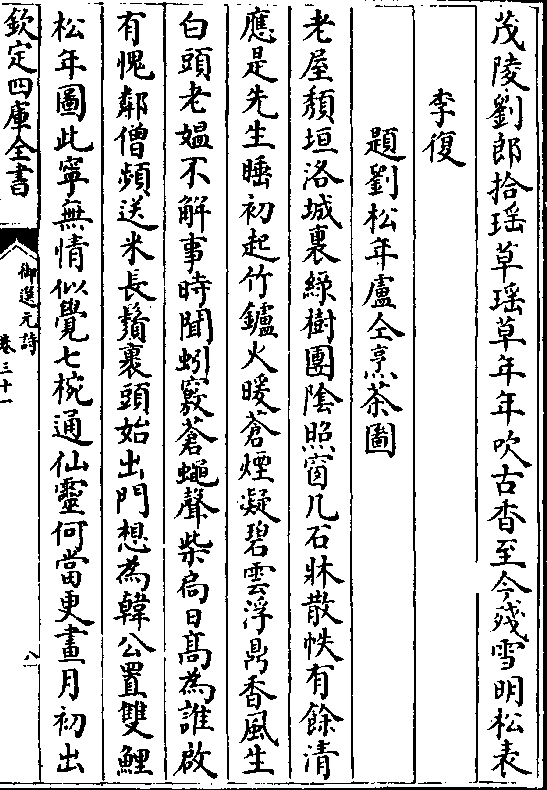 茂陵劉郎拾瑶草瑶草年年吹古香至今殘雪明松表
李復
題劉松年盧仝烹茶圖
老屋頽垣洛城裏綠樹團陰照窗几石牀散帙有餘清
應是先生睡初起竹鑪火暖蒼煙凝碧雲浮鼎香風生
白頭老媪不解事時聞蚓竅蒼蠅聲柴扃日髙為誰啟
有愧鄰僧頻送米長鬚裹頭始出門想為韓公置雙鯉
松年圖此寧無情似覺七椀通仙靈何當更畫月初出
欽定四庫全書
御選元詩
卷三十一
八